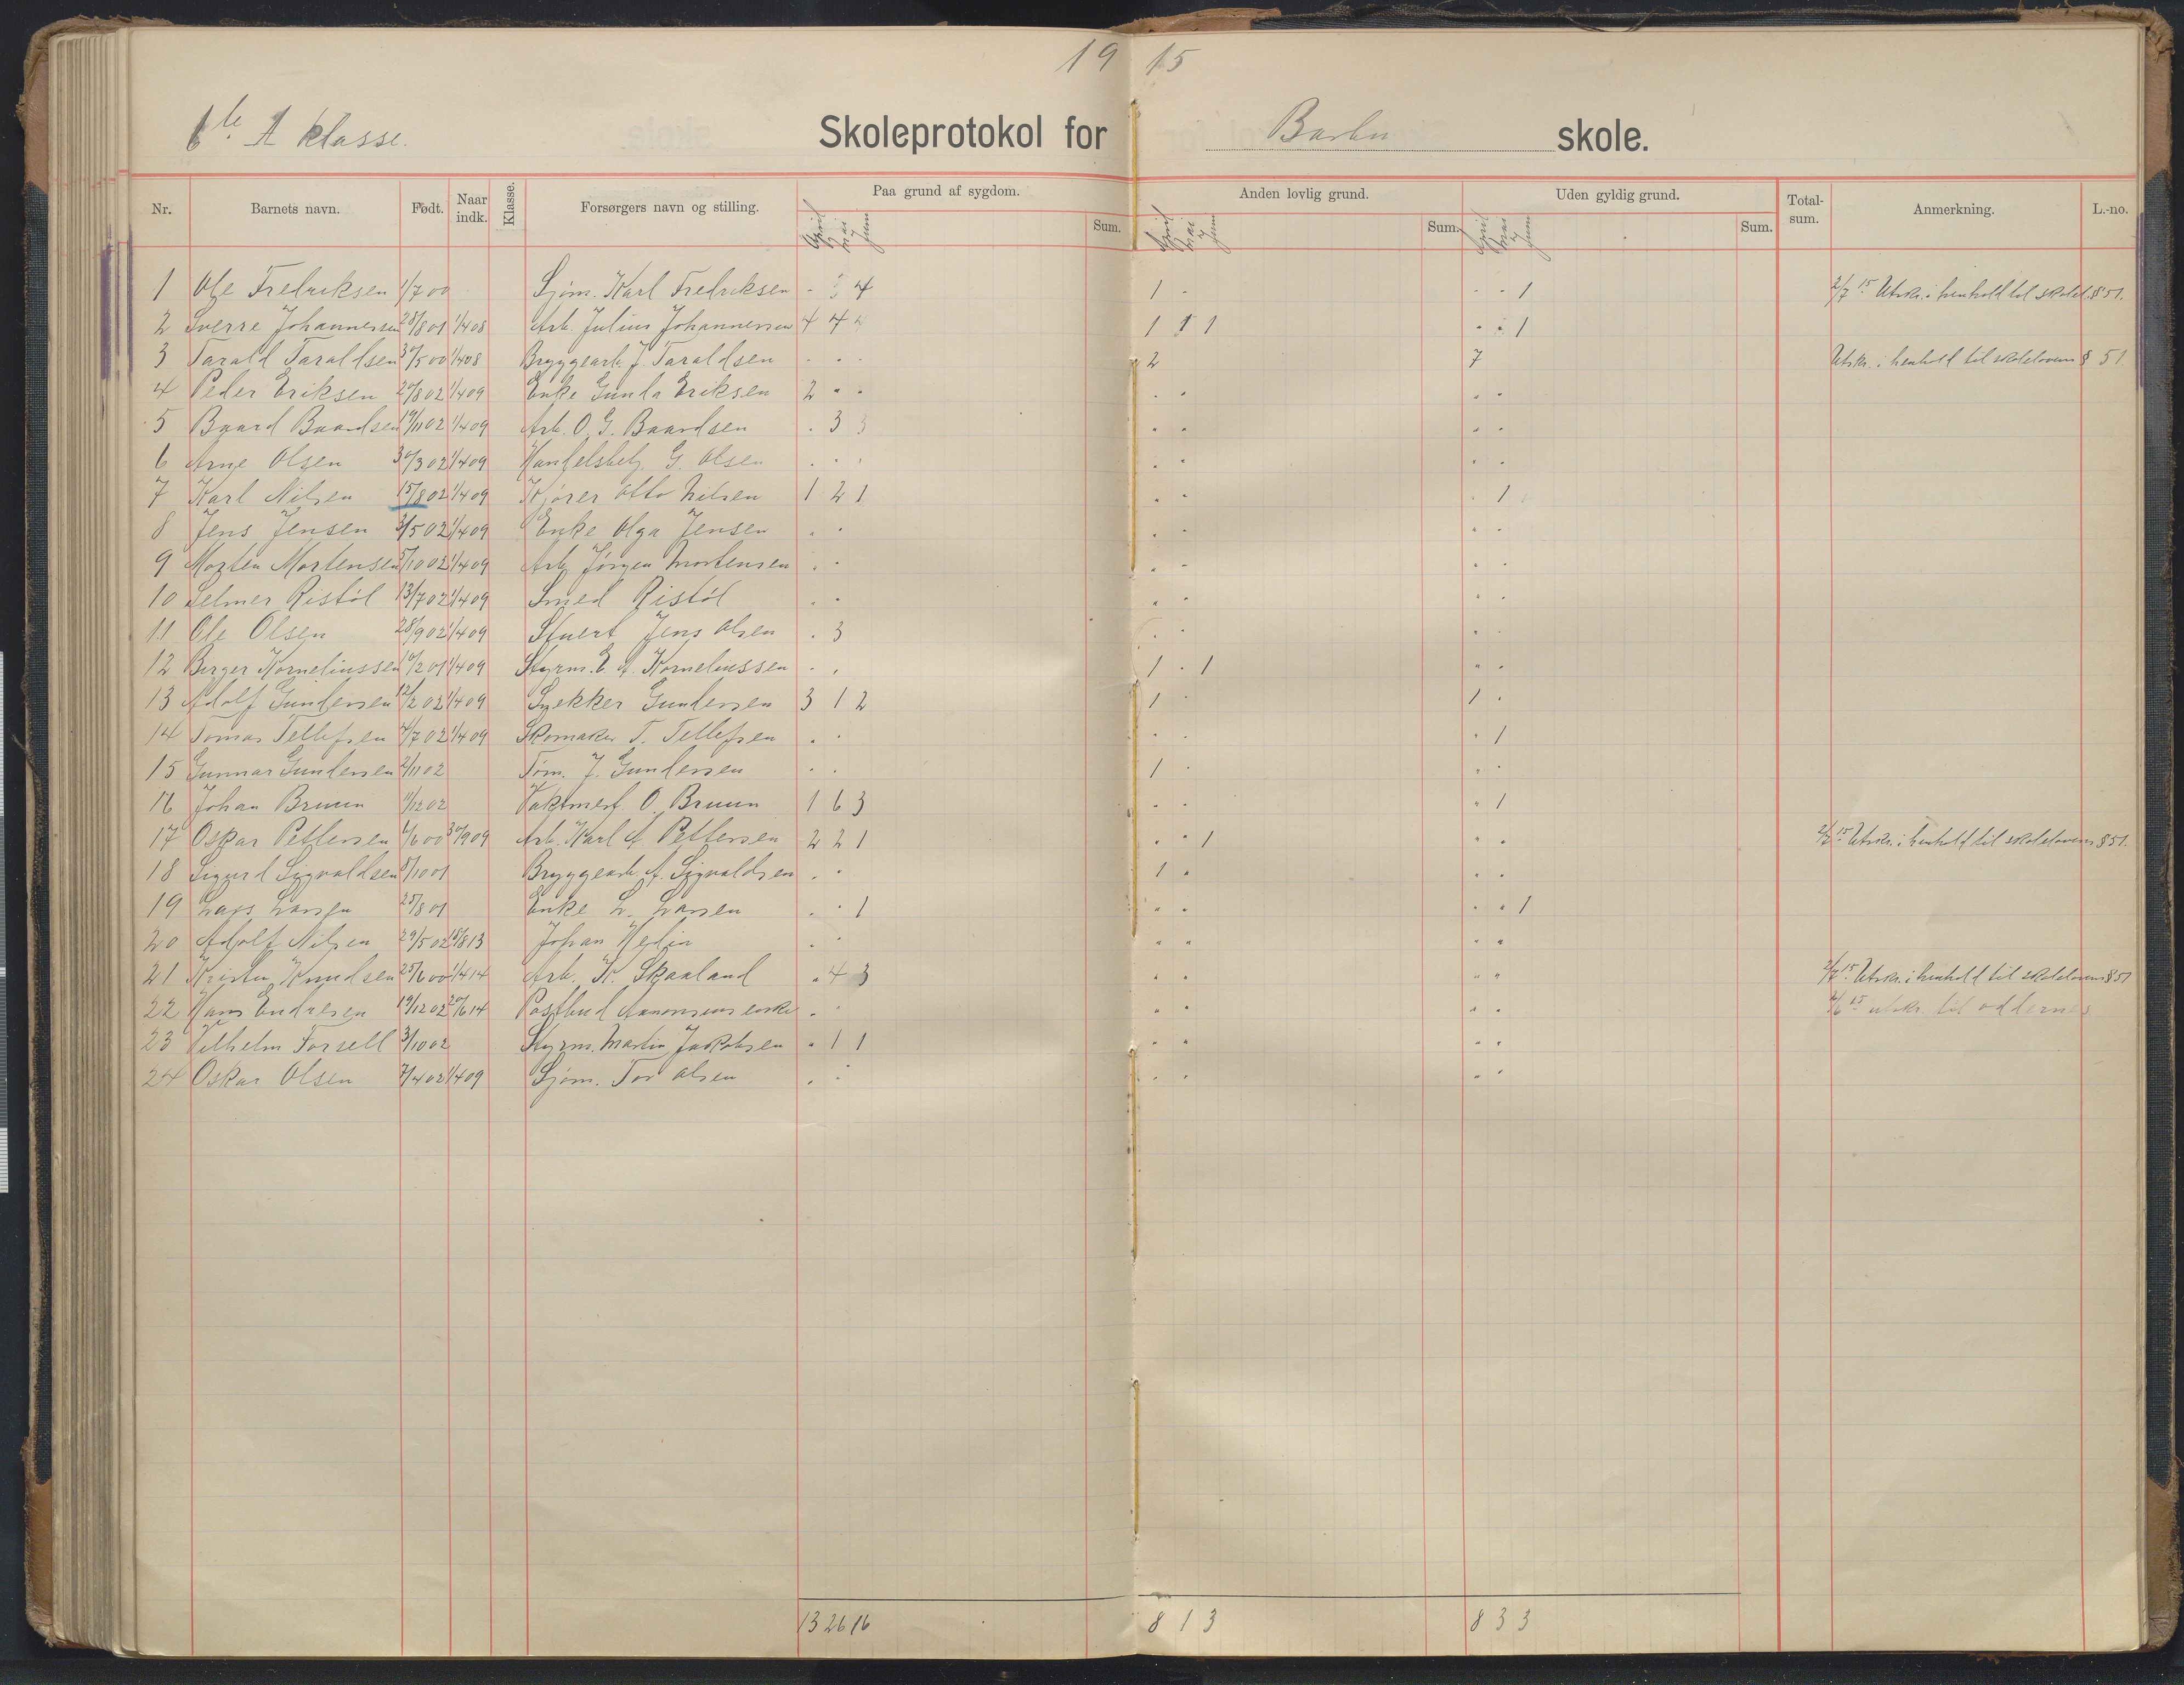 19 15
6te A klasse.
Skoleprotokol for Barbu skole.
Nr. Barnets navn. Født. Naar indk. Klasse. Forsørgers navn og stilling. Paa grund af sygdom. Sum. Anden lovlig grund. Sum. Uden gyldig grund. Sum. Total-sum. Anmerkning. L.-no.
April Mai Juni April Mai Juni April Mai Juni
1 Ole Fredriksen 1/7 00 Sjøm. Karl Fredriksen " 3 4 1 " " " 1 2/7 15 Utskr. i henhold til skolel. § 51.
2 Sverre Johannessen 28/8 01 1/4 08 Arb. Julius Johannessen 4 4 4 1 1 1 " " 1
3 Tarald Taraldsen 30/5 00 1/4 08 Bryggearb. J. Taraldsen " " " 2 7 Utskr. i henhold til skolelovens § 51.
4 Peder Eriksen 20/8 02 1/4 09 Enke Gunda Eriksen 2 " " " " " "
5 Baard Baardsen 19/11 02 1/4 09 Arb. O. G. Baardsen " 3 3 " " " "
6 Arne Olsen 30/3 02 1/4 09 Handelsbetj. G. Olsen " " " " " " "
7 Karl Nilsen 15/8 02 1/4 09 Kjører Otto Nilsen 1 2 1 " " " 1
8 Jens Jensen 3/5 02 1/4 09 Enke Olga Jensen " " " " " "
9 Morten Mortensen 5/10 02 1/4 09 Arb. Jørgen Mortensen " " " " " "
10 Selmer Ristøl 13/7 02 1/4 09 Smed Ristøl " " " " " "
11 Ole Olsen 28/9 02 1/4 09 Stuert Jens Olsen " 3 " " " "
12 Birger Korneliussen 10/2 01 1/4 09 Styrm. E. A. Korneliussen " " 1 " 1 " "
13 Adolf Gundersen 12/2 02 1/4 09 Snekker Gundersen 3 1 2 1 " 1 "
14 Tomas Tellefsen 4/7 02 1/4 09 Skomaker T. Tellefsen " " " " " 1
15 Gunnar Gundersen 2/11 02 Tøm. J. Gundersen " " 1 " " "
16 Johan Bruun 11/12 02 Vaktmest. O. Bruun 1 6 3 " " " 1
17 Oskar Pettersen 6/6 00 30/9 09 Arb. Karl A. Pettersen 2 2 1 " " 1 " " 2/7 15 Utskr. i henhold til skolelovens § 51.
18 Sigurd Sigvaldsen 8/10 01 Bryggearb. A. Sigvaldsen " " 1 " " "
19 Lars Larsen 25/8 01 Enke L. Larsen " " 1 " " " " 1
20 Adolf Nilsen 29/5 02 18/8 13 Johan Hedin " " " " " "
21 Kristen Knudsen 25/6 00 1/4 14 Arb. K. Skaaland " 4 3 " " " " 2/7 15 Utskr. i henhold til skolelovens § 51
22 Hans Endresen 19/12 02 20/6 14 Postbud Aanonsens enke " " " " " 2/6 15 utskr. til Oddernes
23 Vilhelm Forsell 3/10 02 Styrm. Martin Jakobsen " 1 1 " " " "
24 Oskar Olsen 7/4 02 1/4 09 Sjøm. Tor Olsen " " " " " "
13 26 16 8 1 3 8 3 3